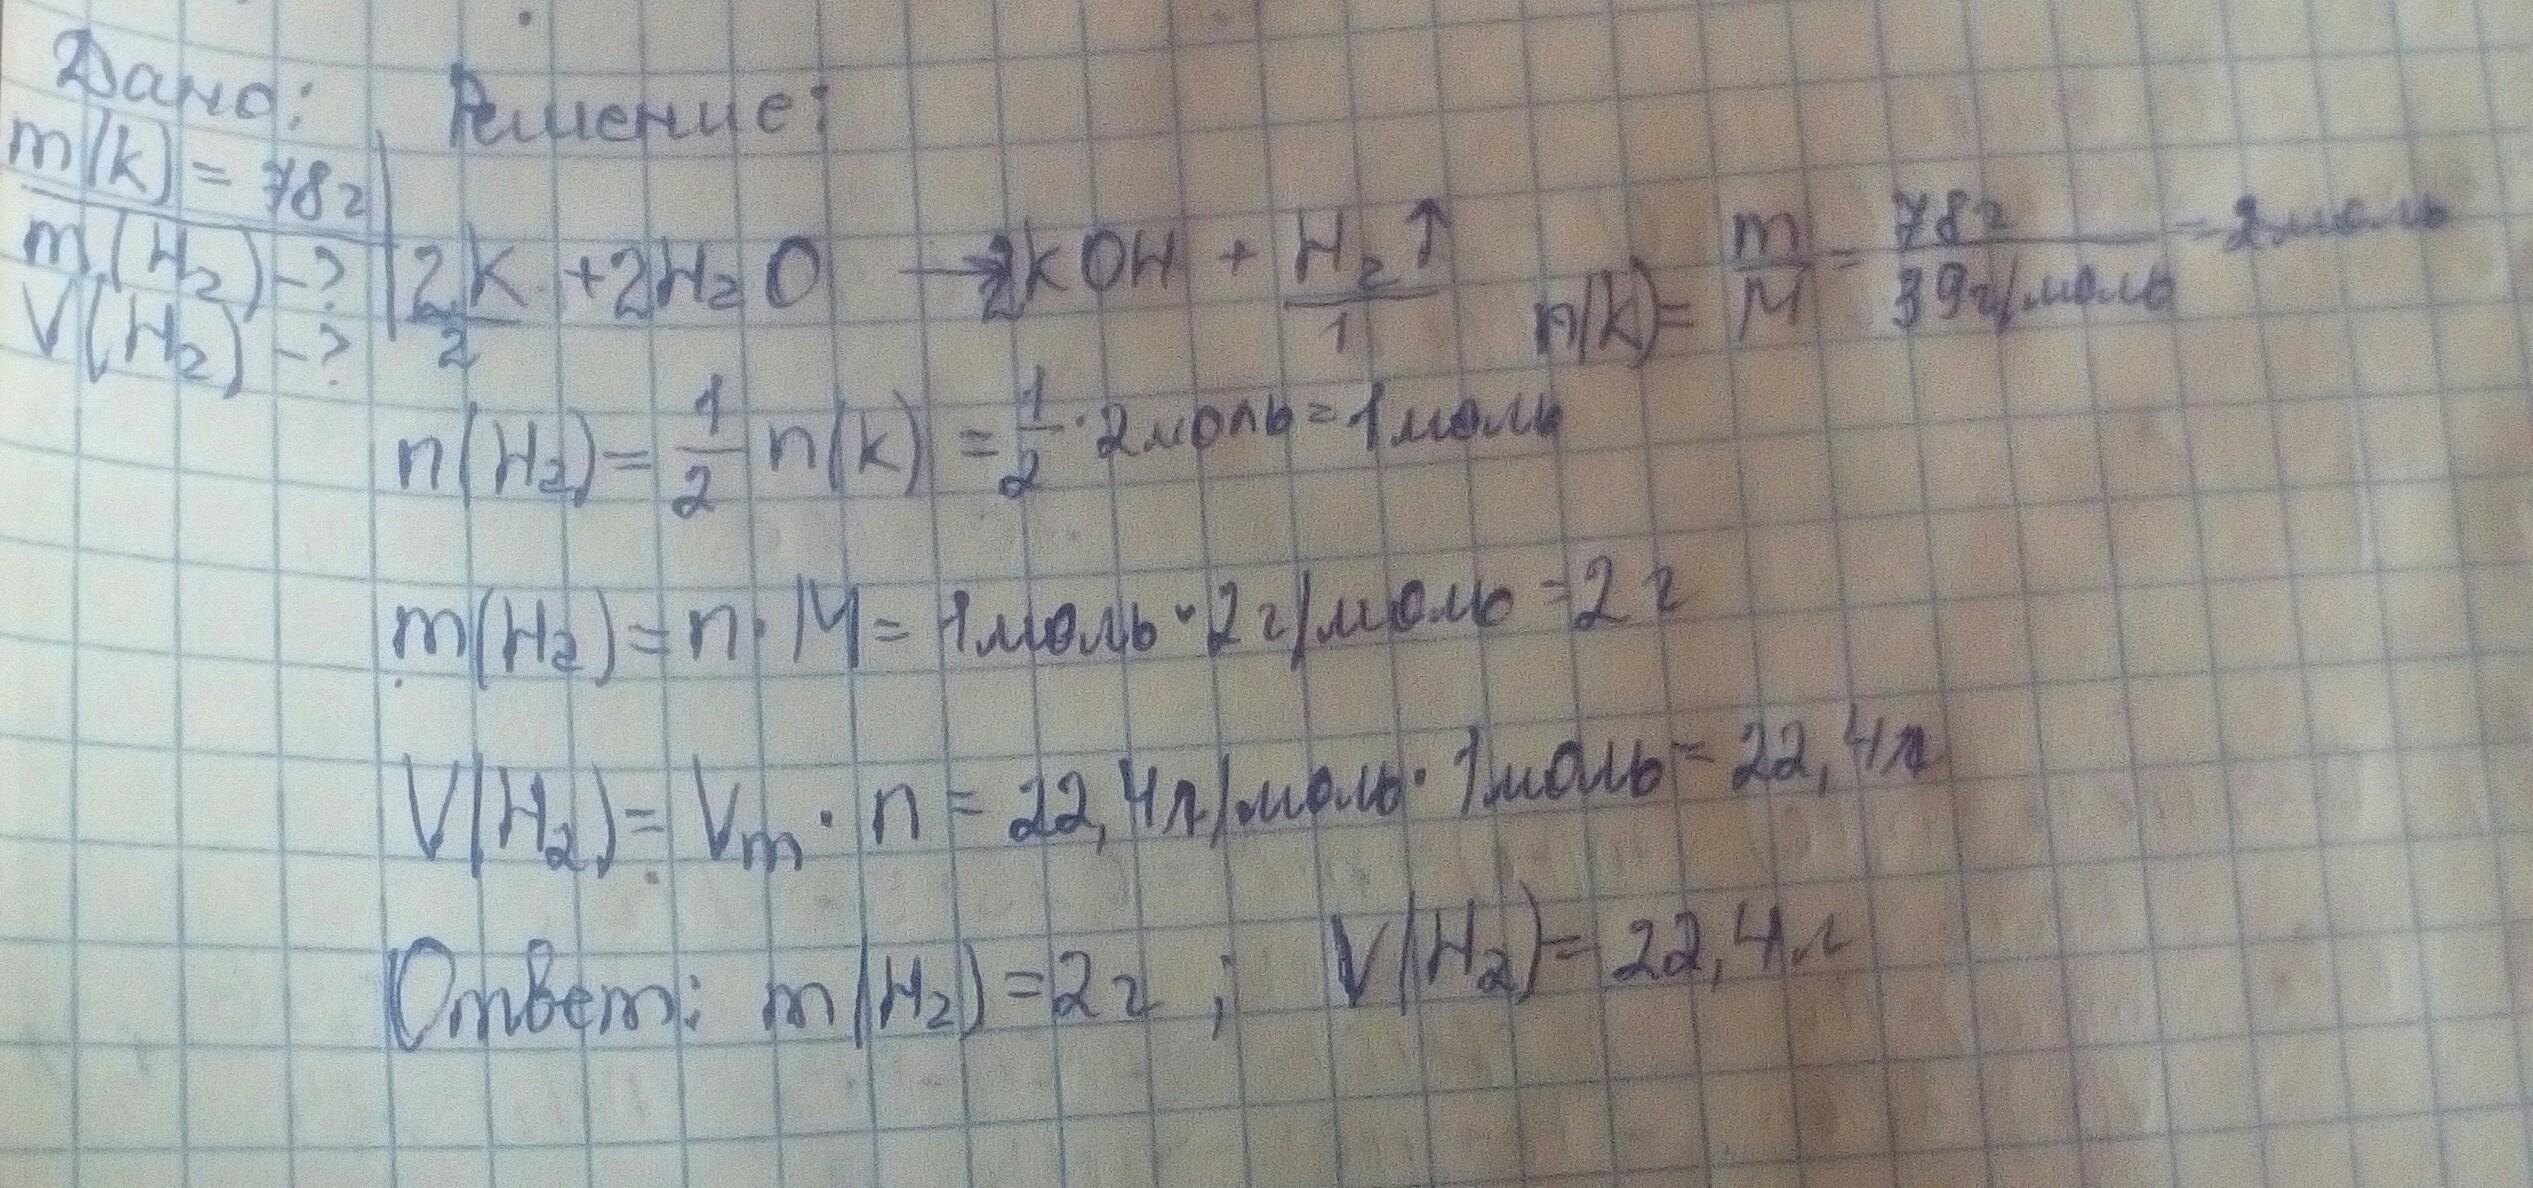 Дано: Решение:
m(K) = 78 г
m(H₂) - ?
V(H₂) - ?
2K + 2H₂O → 2KOH + H₂↑ n(K) = m/M = 78г/39г/моль = 2моль
2 1
n(H₂) = 1/2 n(K) = 1/2 · 2моль = 1моль
m(H₂) = n · M = 1моль · 2г/моль = 2 г
V(H₂) = Vm · n = 22,4л/моль · 1моль = 22,4л
Ответ: m(H₂) = 2г ; V(H₂) = 22,4л